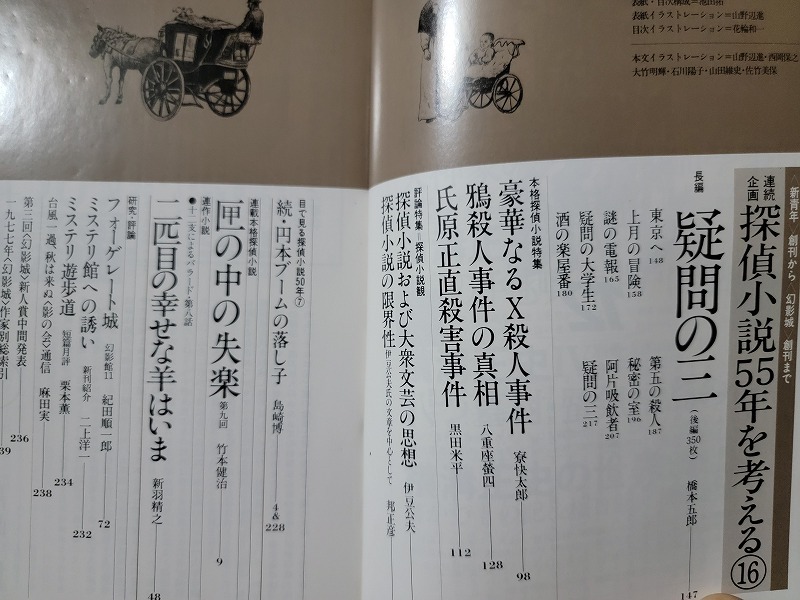 表紙イラストレーション=山野辺進
目次イラストレーション=花輪和一
本文イラストレーション=山野辺進・西岡保之
大竹明輝・石川陽子・山田維史・佐竹美保
〈新青年〉創刊から〈幻影城〉創刊まで
連続企画
探偵小説55年を考える⑯
長編
疑問の三
(後編350枚)
橋本五郎
147
東京へ148
上月の冒険158
謎の電報165
疑問の大学生172
酒の楽屋番180
第五の殺人187
秘密の室196
阿片吸飲者207
疑問の三217
本格探偵小説特集
豪華なるX殺人事件 寮快太郎 98
鴉殺人事件の真相 八重座螢四 128
氏原正直殺害事件 黒田米平 112
評論特集=探偵小説観
探偵小説および大衆文芸の思想 伊豆公夫
探偵小説の限界性 伊豆公夫氏の文章を中心として 邦正彦
目で見る探偵小説50年⑦
続・円本ブームの落し子 島崎博 4&228
連載本格探偵小説
匣の中の失楽 第九回 竹本健治 9
連作小説
●十二支によるバラード・第八話
二匹目の幸せな羊はいま 新羽精之 48
研究・評論
フォーゲレート城 幻影館11 紀田順一郎 72
ミステリ館への誘い 新刊紹介 二上洋一 232
ミステリ遊歩道 短篇月評 栗本薫 234
台風一過、秋は来ぬ〈影の会〉通信 麻田実 238
第三回〈幻影城〉新人賞中間発表 236
一九七七年〈幻影城〉作家別総索引